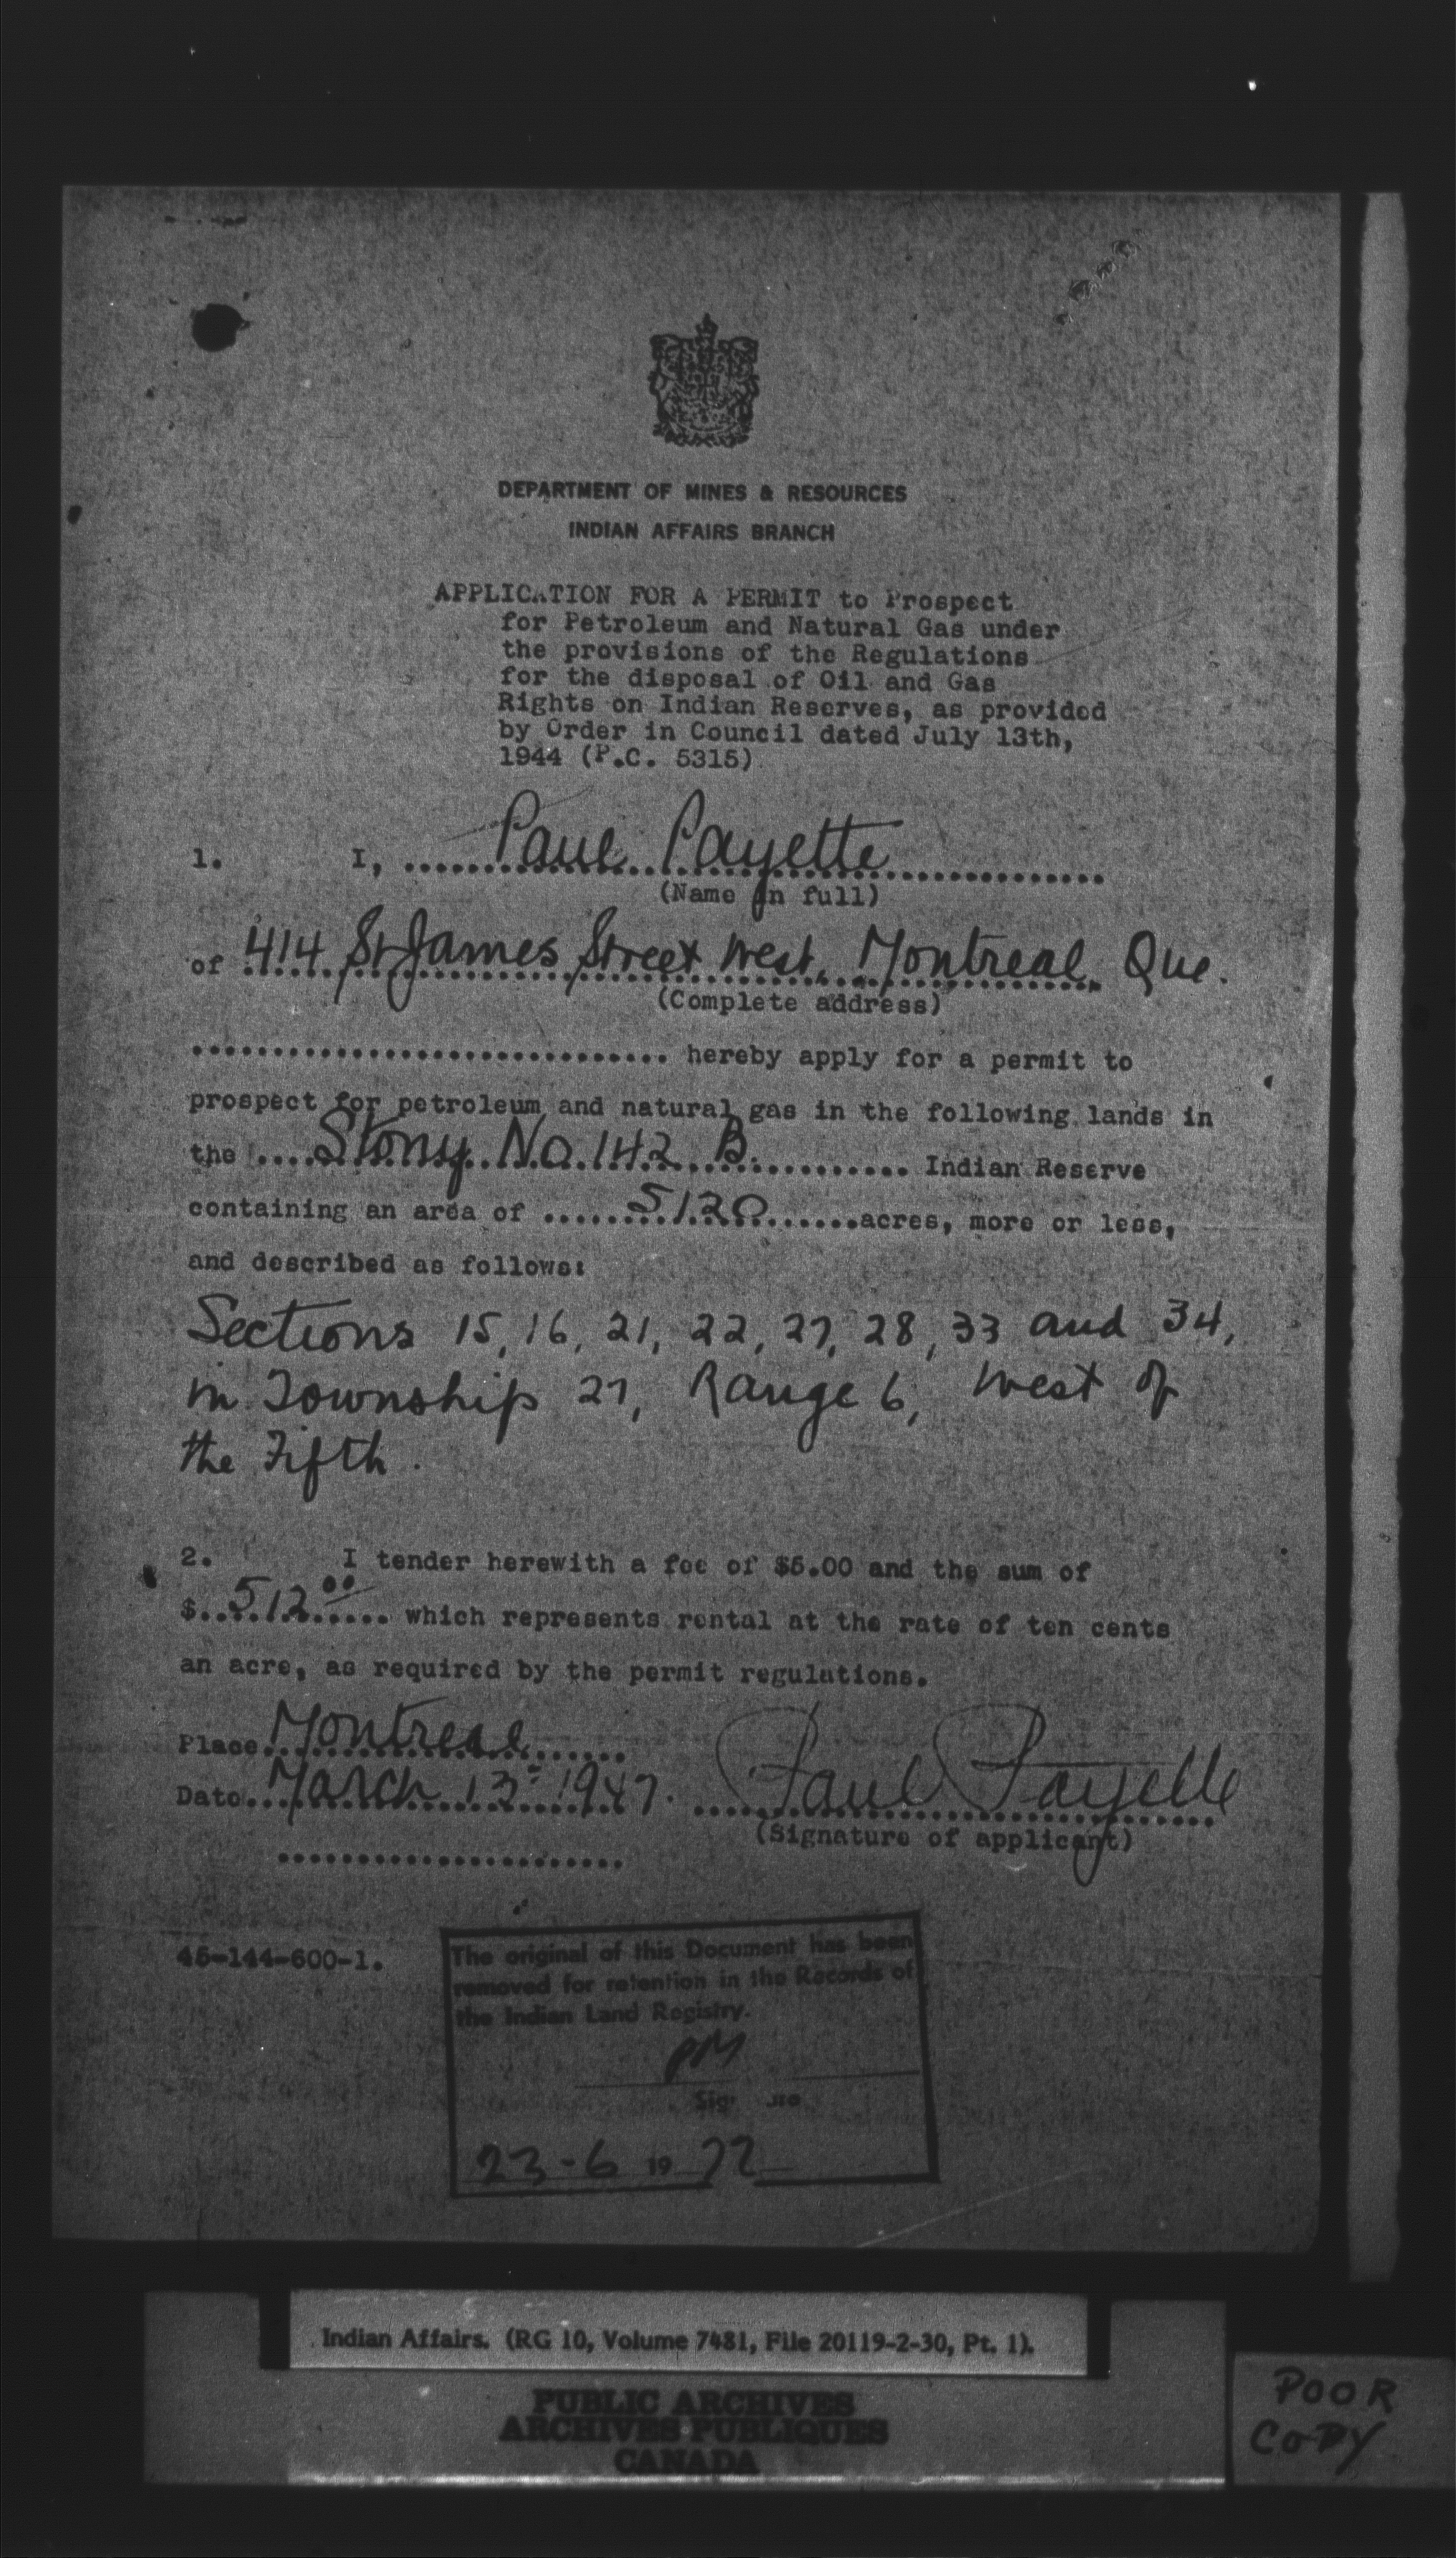 DEPARTMENT OF MINES & RESOURCES
INDIAN AFFAIRS BRANCH
APPLICATION FOR A PERMIT to Prospect
for Petroleum and Natural Gas under
the provisions of the Regulations
for the disposal of Oil and Gas
Rights on Indian Reserves, as provided
by Order in Council dated July 13th,
1944 (P.C. 5315)
1. I, Paul Payette
(Name in full)
of 414 St James Street West, Montreal, Que.
(Complete address)
hereby apply for a permit to
prospect for petroleum and natural gas in the following lands in
the Stony No. 142 B. Indian Reserve
containing an area of 5120 acres, more or less,
and described as follows:
Sections 15, 16, 21, 22, 27, 28, 33 and 34,
in Township 27, Range 6, West of
the Fifth.
2. I tender herewith a fee of $5.00 and the sum of
$ 512.00 which represents rental at the rate of ten cents
an acre, as required by the permit regulations.
Place Montreal
Date March 13 1947. Paul Payette
(Signature of applicant)
45-144-600-1.
The original of this Document has been
removed for retention in the Records of
the Indian Land Registry.
PM
23-6 1972
Indian Affairs. (RG 10, Volume 7481, File 20119-2-30, Pt. 1).
PUBLIC ARCHIVES
ARCHIVES PUBLIQUES
CANADA
POOR
COPY